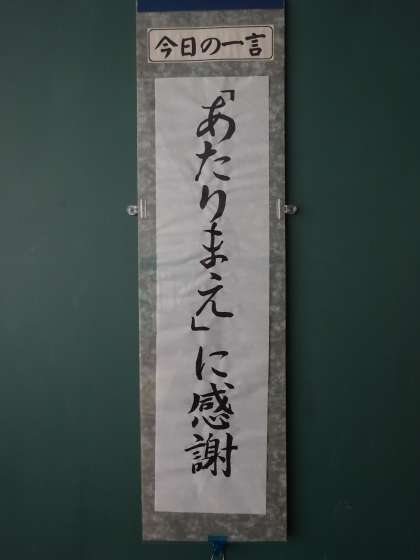 今日の一言
「あたりまえ」に感謝